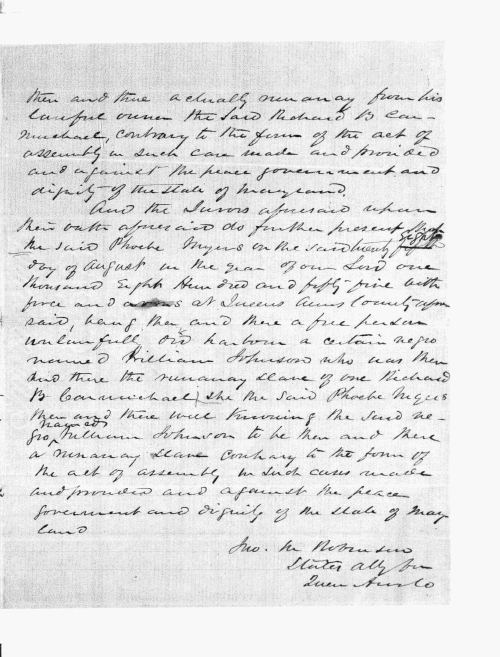 then and there actually runaway from his
lawful owner the said Richard B Car-
michael, contrary to the form of the act of
assembly in such case made and provided
and against the peace government and
dignity of the state of Maryland.
And the Jurors aforesaid upon
their oath aforesaid do further present that
the said Phoebe Myers on the said twenty eighth
day of August in the year of our Lord one
thousand Eight Hundred and fifty five with
force and arms at Queens Anns County afore
said, being then and there a free person
unlawfully did harbour a certain negro
named William Johnson who was then
and there the runaway slave of one Richard
B Carmichael, she the said Phoebe Myers
then and there well knowing the said ne-
gro named William Johnson to be then and there
a runaway slave contrary to the form of
the act of assembly in such cases made
and provided and against the peace
government and dignity of the state of Mary
land
Jno. M Robinson
States Atty for
Queen Anns Co